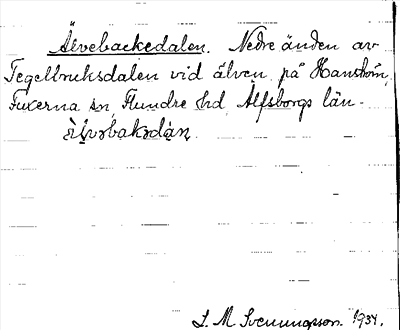 Älvebackedalen. Nedre änden av
Tegelbruksdalen vid älven på Hanström,
Fuxerna sn, Flundre hd Älfsborgs län.
L. M. Svenungsson. 1934.